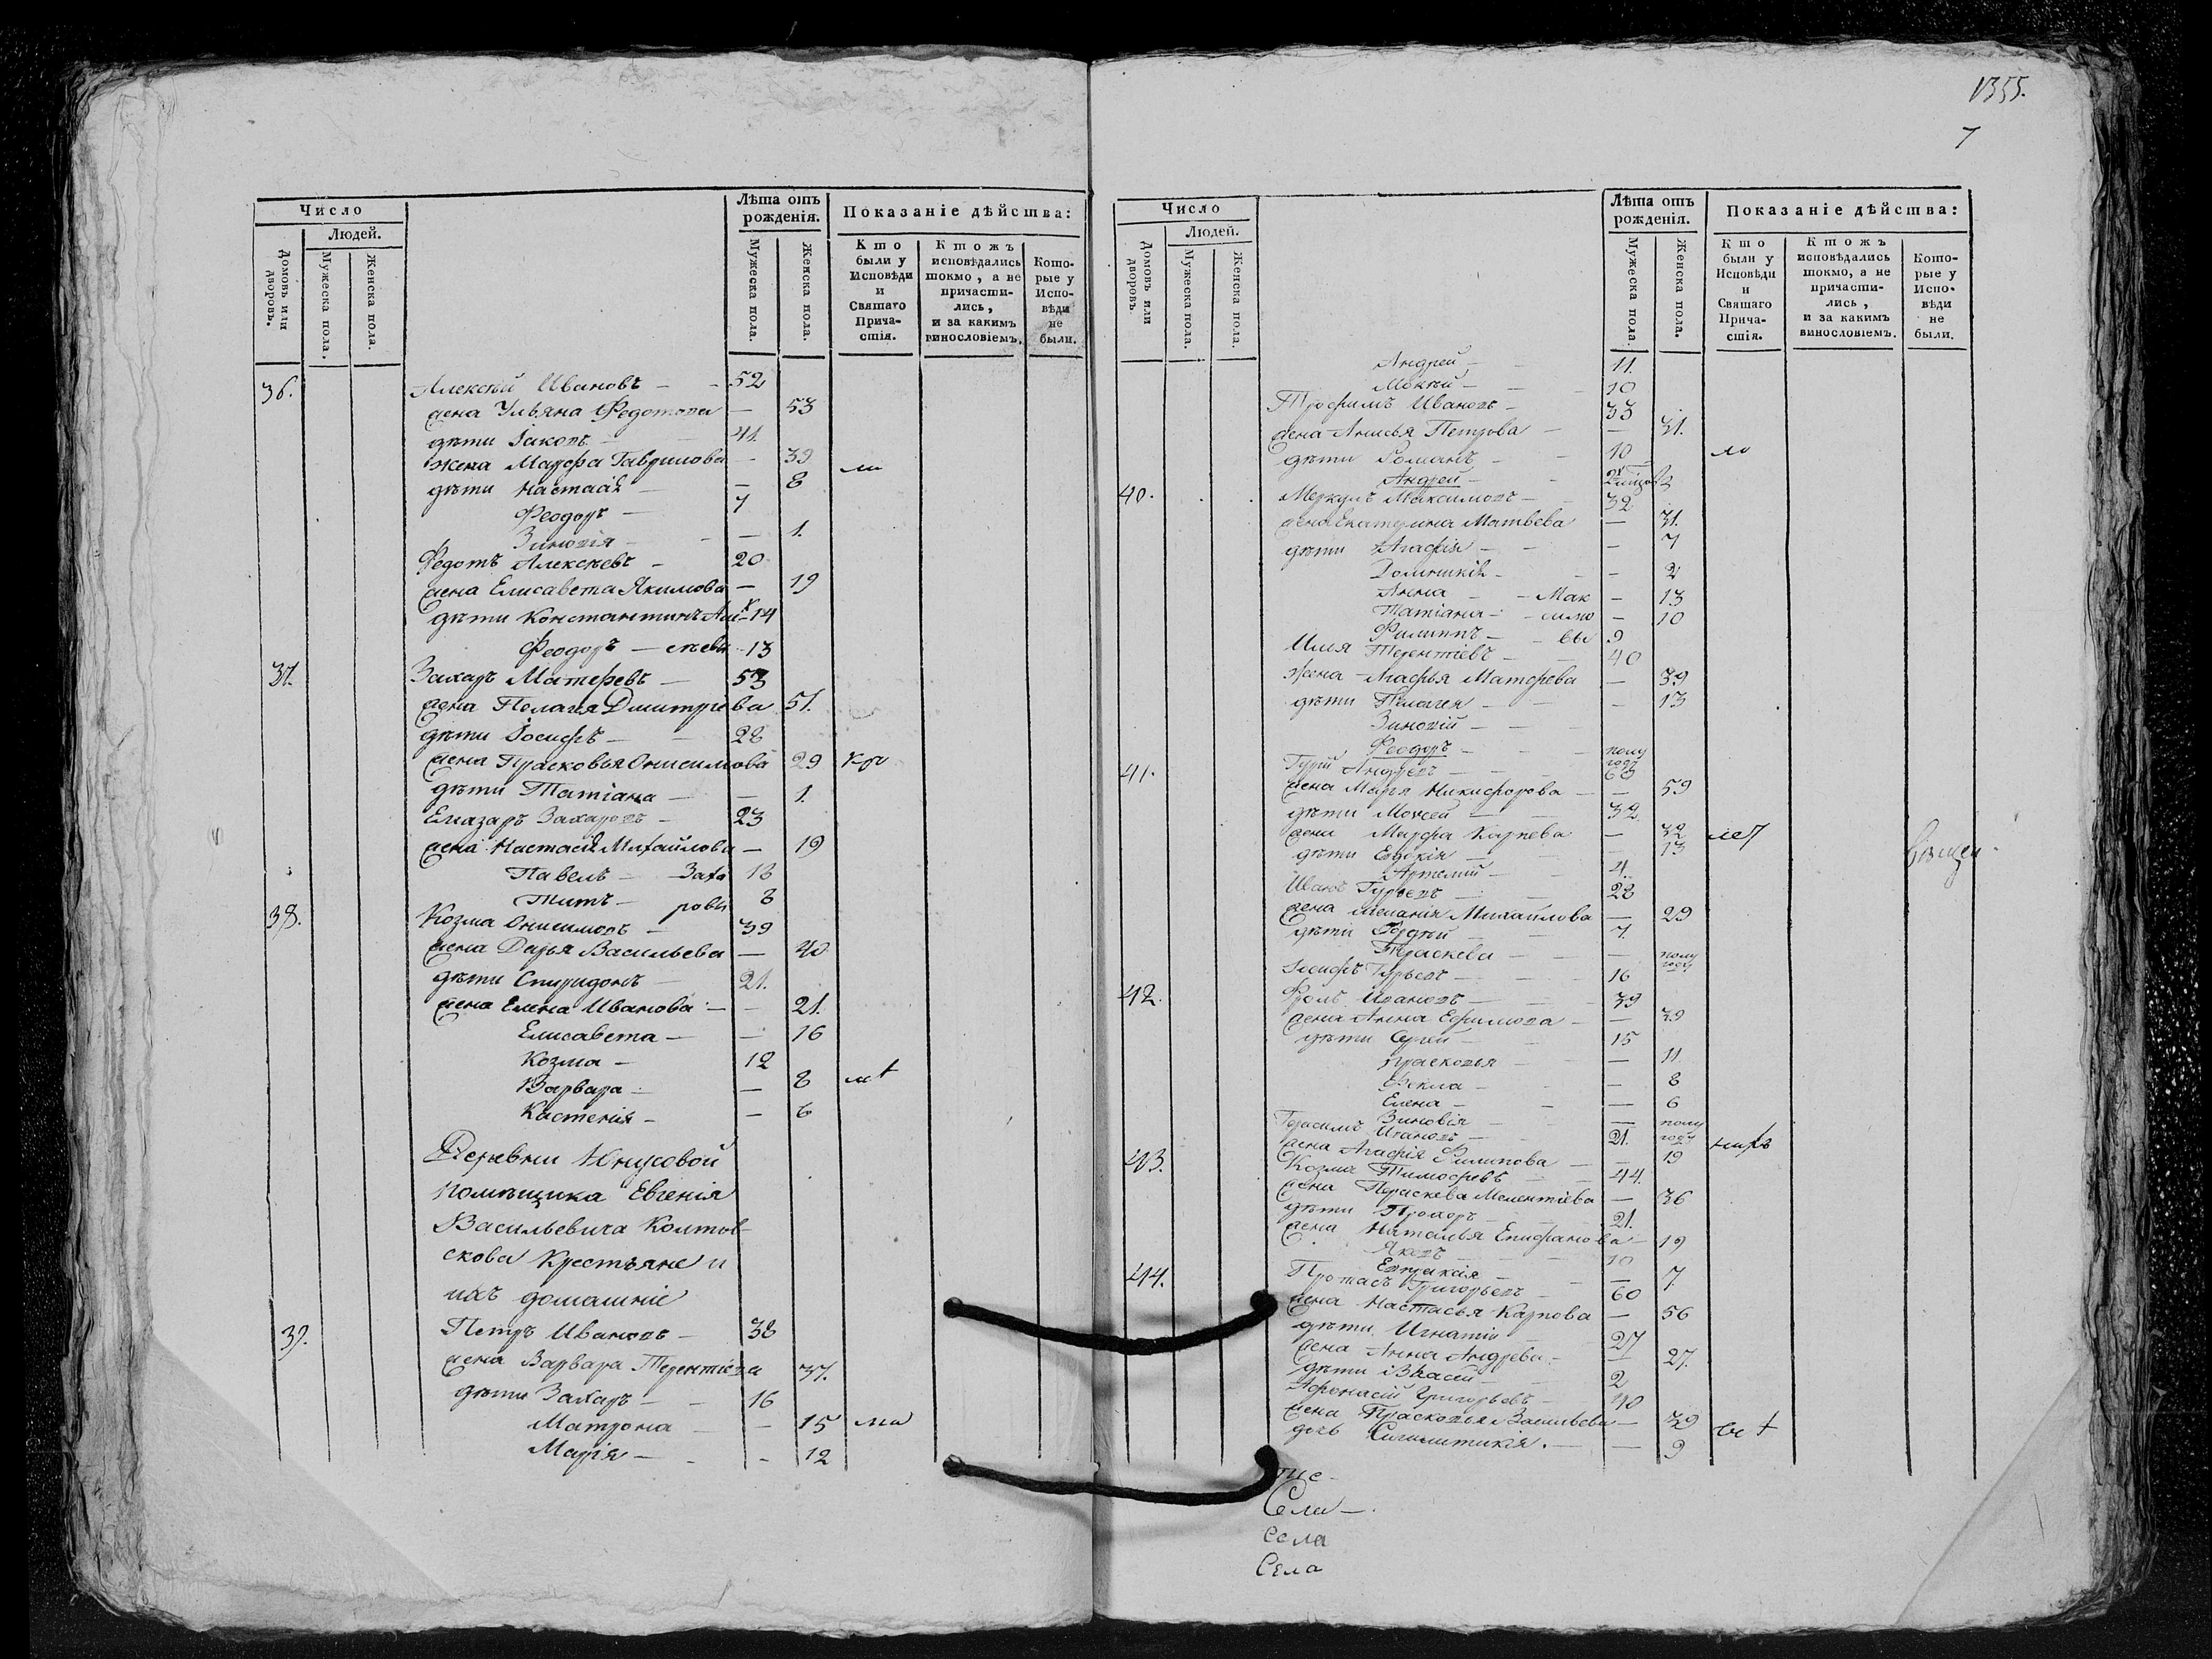 Число
Людей.
Домовъ или дворовъ.
Мужеска пола.
Женска пола.
Лѣта отъ рожденія.
Мужеска пола.
Женска пола.
Показаніе дѣйства:
Кто были у Исповѣди и Святаго Причастія.
Ктожъ исповѣдались токмо, а не причастились, и за какимъ винословіемъ.
Которые у Исповѣди не были.
36. Алексѣй Ивановъ 52
жена Ульяна Федотова 53
дѣти Іаковъ 41.
жена Марфа Гаврилова 39
дѣти Настасія 8
Феодоръ 7
Зиновія 1.
Федотъ Алексѣевъ 20
жена Елисавета Якимова 19
дѣти Константинъ Але 14
Феодоръ ксѣевы 13
37. Захаръ Матфевъ 53
жена Пелагея Дмитріева 51.
дѣти Іосифъ 28
жена Прасковья Онисимова 29
дѣти Татіана 1.
Елазаръ Захаровъ 23
жена Настасія Михайлова 19
Павелъ Заха 13
Титъ ровы 8
38. Козма Онисимовъ 39
жена Дарья Васильева 40
дѣти Спиридонъ 21.
жена Елена Иванова 21.
Елисавета 16
Козма 12
Варвара 8
Кастенія 6
Деревни Юнусовой
помѣщика Евгенія
Васильевича Колтов
скова Крестьяне и
ихъ домашніе
39. Петръ Ивановъ 38
жена Варвара Терентіева 37.
дѣти Захаръ 16
Матрона 15
Марія 12
1355.
7
Число
Людей.
Домовъ или дворовъ.
Мужеска пола.
Женска пола.
Лѣта отъ рожденія.
Мужеска пола.
Женска пола.
Показаніе дѣйства:
Кто были у Исповѣди и Святаго Причастія.
Ктожъ исповѣдались токмо, а не причастились, и за какимъ винословіемъ.
Которые у Исповѣди не были.
Андрей 11.
Мокѣй 10
Трофимъ Ивановъ 33
жена Анисья Петрова 31.
дѣти Романъ 10
Андрей
40. Меркулъ Максимовъ 32
жена Екатерина Матвѣева 31.
дѣти Агафія 7
Домникія 2
Анна Мак 13
Татіана симо 10
Филиппъ вы 9
Илья Терентіевъ 40
жена Агафья Матфева 39
дѣти Пелагея 13
Зиновій
Феодоръ полу году
41. Гурій Андреевъ 60
жена Марья Никифорова 59
дѣти Моисей 32
жена Марфа Карпева 32
дѣти Евдокія 13
Артемій 4.
Иванъ Гурьевъ 28
жена Меланія Михайлова 29
дѣти Гордѣй 7.
Параскева полу году
Іосифъ Гурьевъ 16
42. Фролъ Ивановъ 39
жена Анна Ефимова 39
дѣти Сергей 15
Прасковья 11.
Фекла 8
Елена 6
Зиновія полу году
Герасимъ Ивановъ 21.
жена Агафія Филипова 19
43. Козма Тимофеевъ 44.
жена Параскева Мелентіева 36
дѣти Прохоръ 21.
жена Наталья Епифанова 19
Яковъ 10
Евпраксія 7.
44. Протасъ Григорьевъ 60
жена Настасья Карпова 56
дѣти Игнатій 27
жена Анна Андреева 27.
дѣти Власій 2
Афонасій Григорьевъ 40
жена Прасковья Васильева 39
дочь Сигклитикія. 9
Села
Села